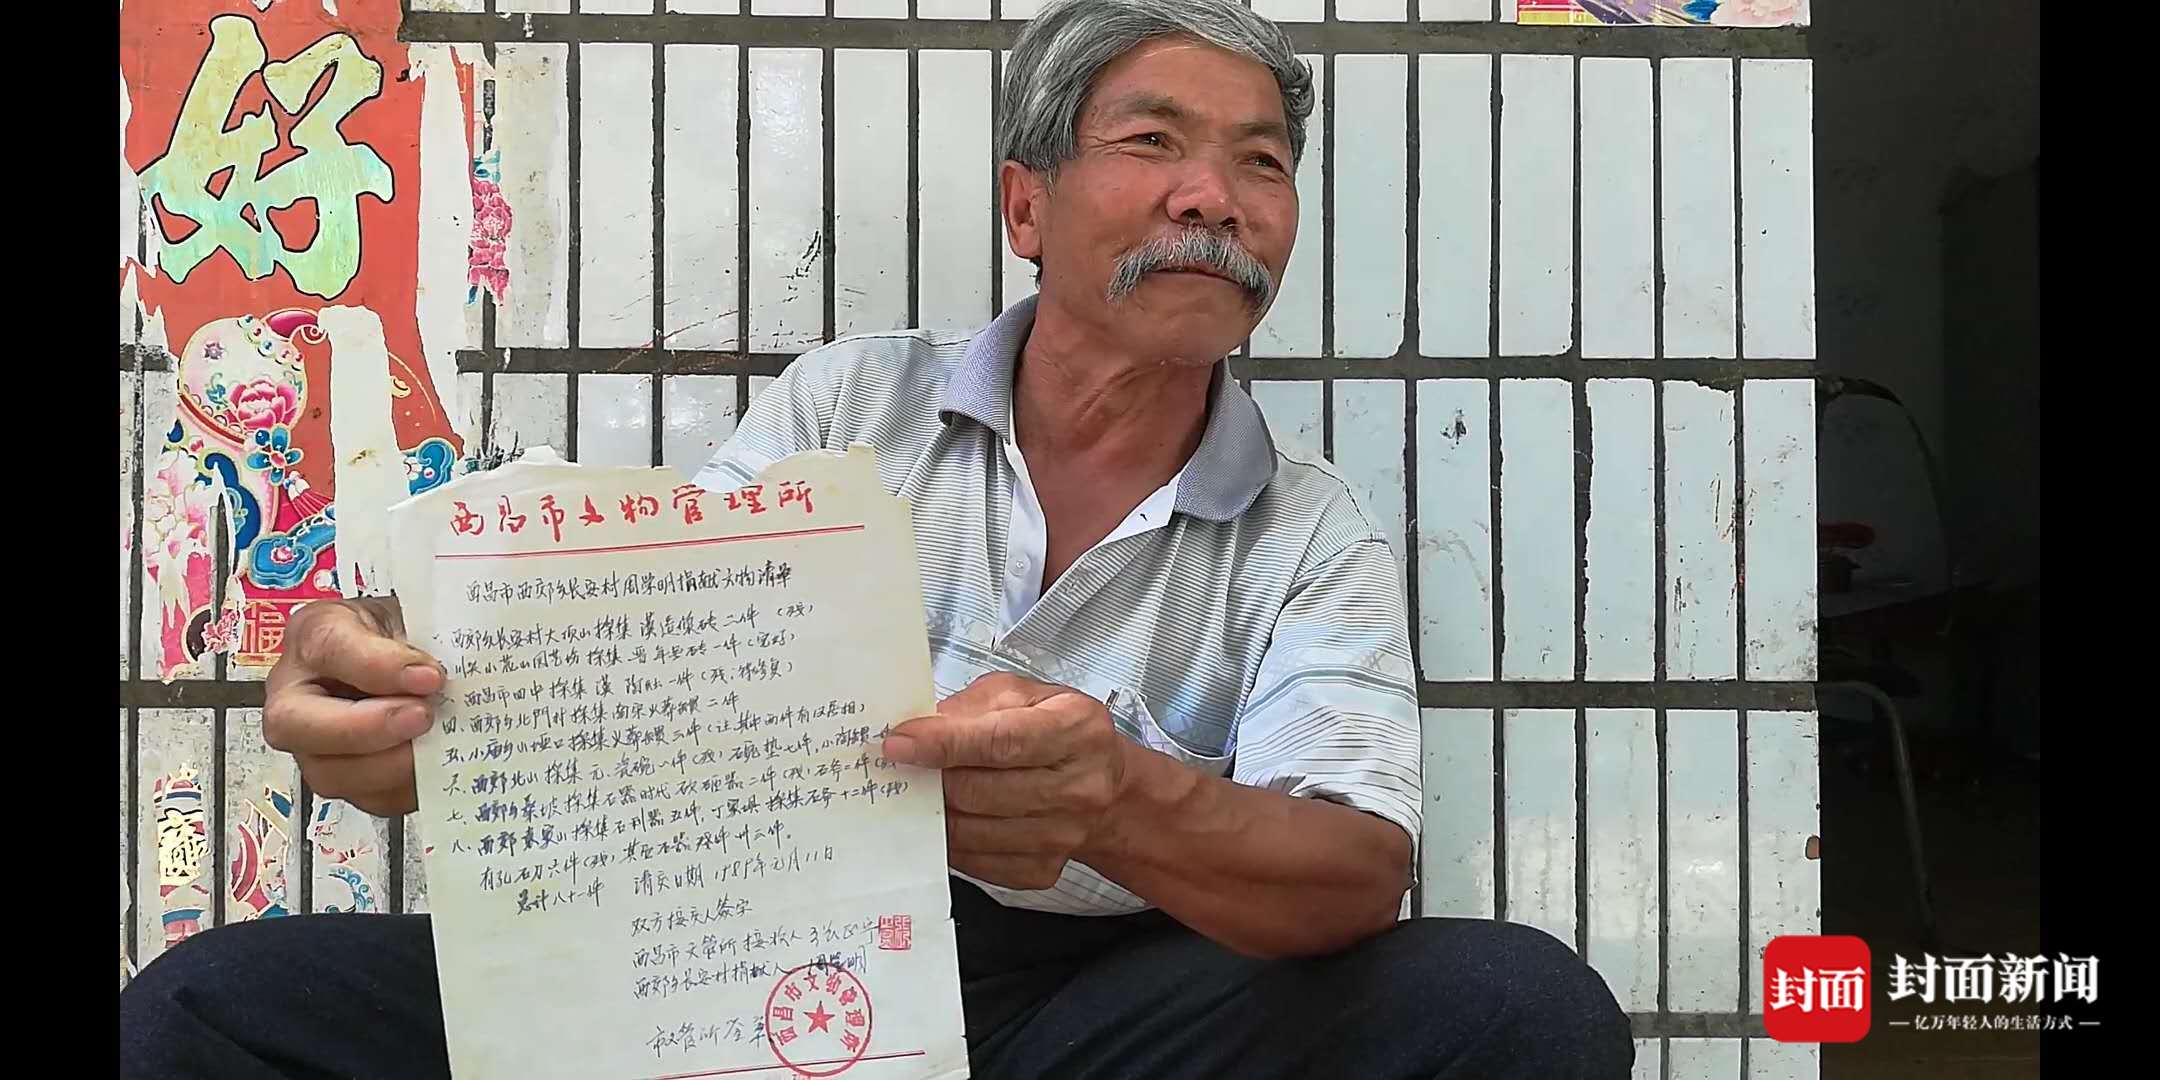 好
福
西昌市文物管理所
西昌市西郊乡长安村周学明捐献文物清单
西郊乡长安村大顶山採集 漢 砖二件 (残)
川兴小花山园艺场採集 晋年 砖一件(完好)
西昌市田中採集 漢 陶 一件(残,待修复)
四、西郊乡北門村採集南宋火葬罐二件
五、小庙乡山垭口採集火葬罐三件(注其中两件有 相)
六、西郊北山採集元、瓷碗一件(残)石碗垫七件,小陶罐一件
七、西郊乡桑坡採集石器时代砍砸器二件(残)石斧二件(残)
八、西郊袁家山採集石利器五件,丁家垻採集石斧十二件(残)
有孔石刀六件(残)其它石器残件卅三件。
总计八十一件 清交日期1989年元月11日
双方接交人签字
西昌市文管所接收人 张正宁
西郊乡长安村捐献人 周学明
市文管所签章
西昌市文物管理所
封面
封面新闻
亿万年轻人的生活方式